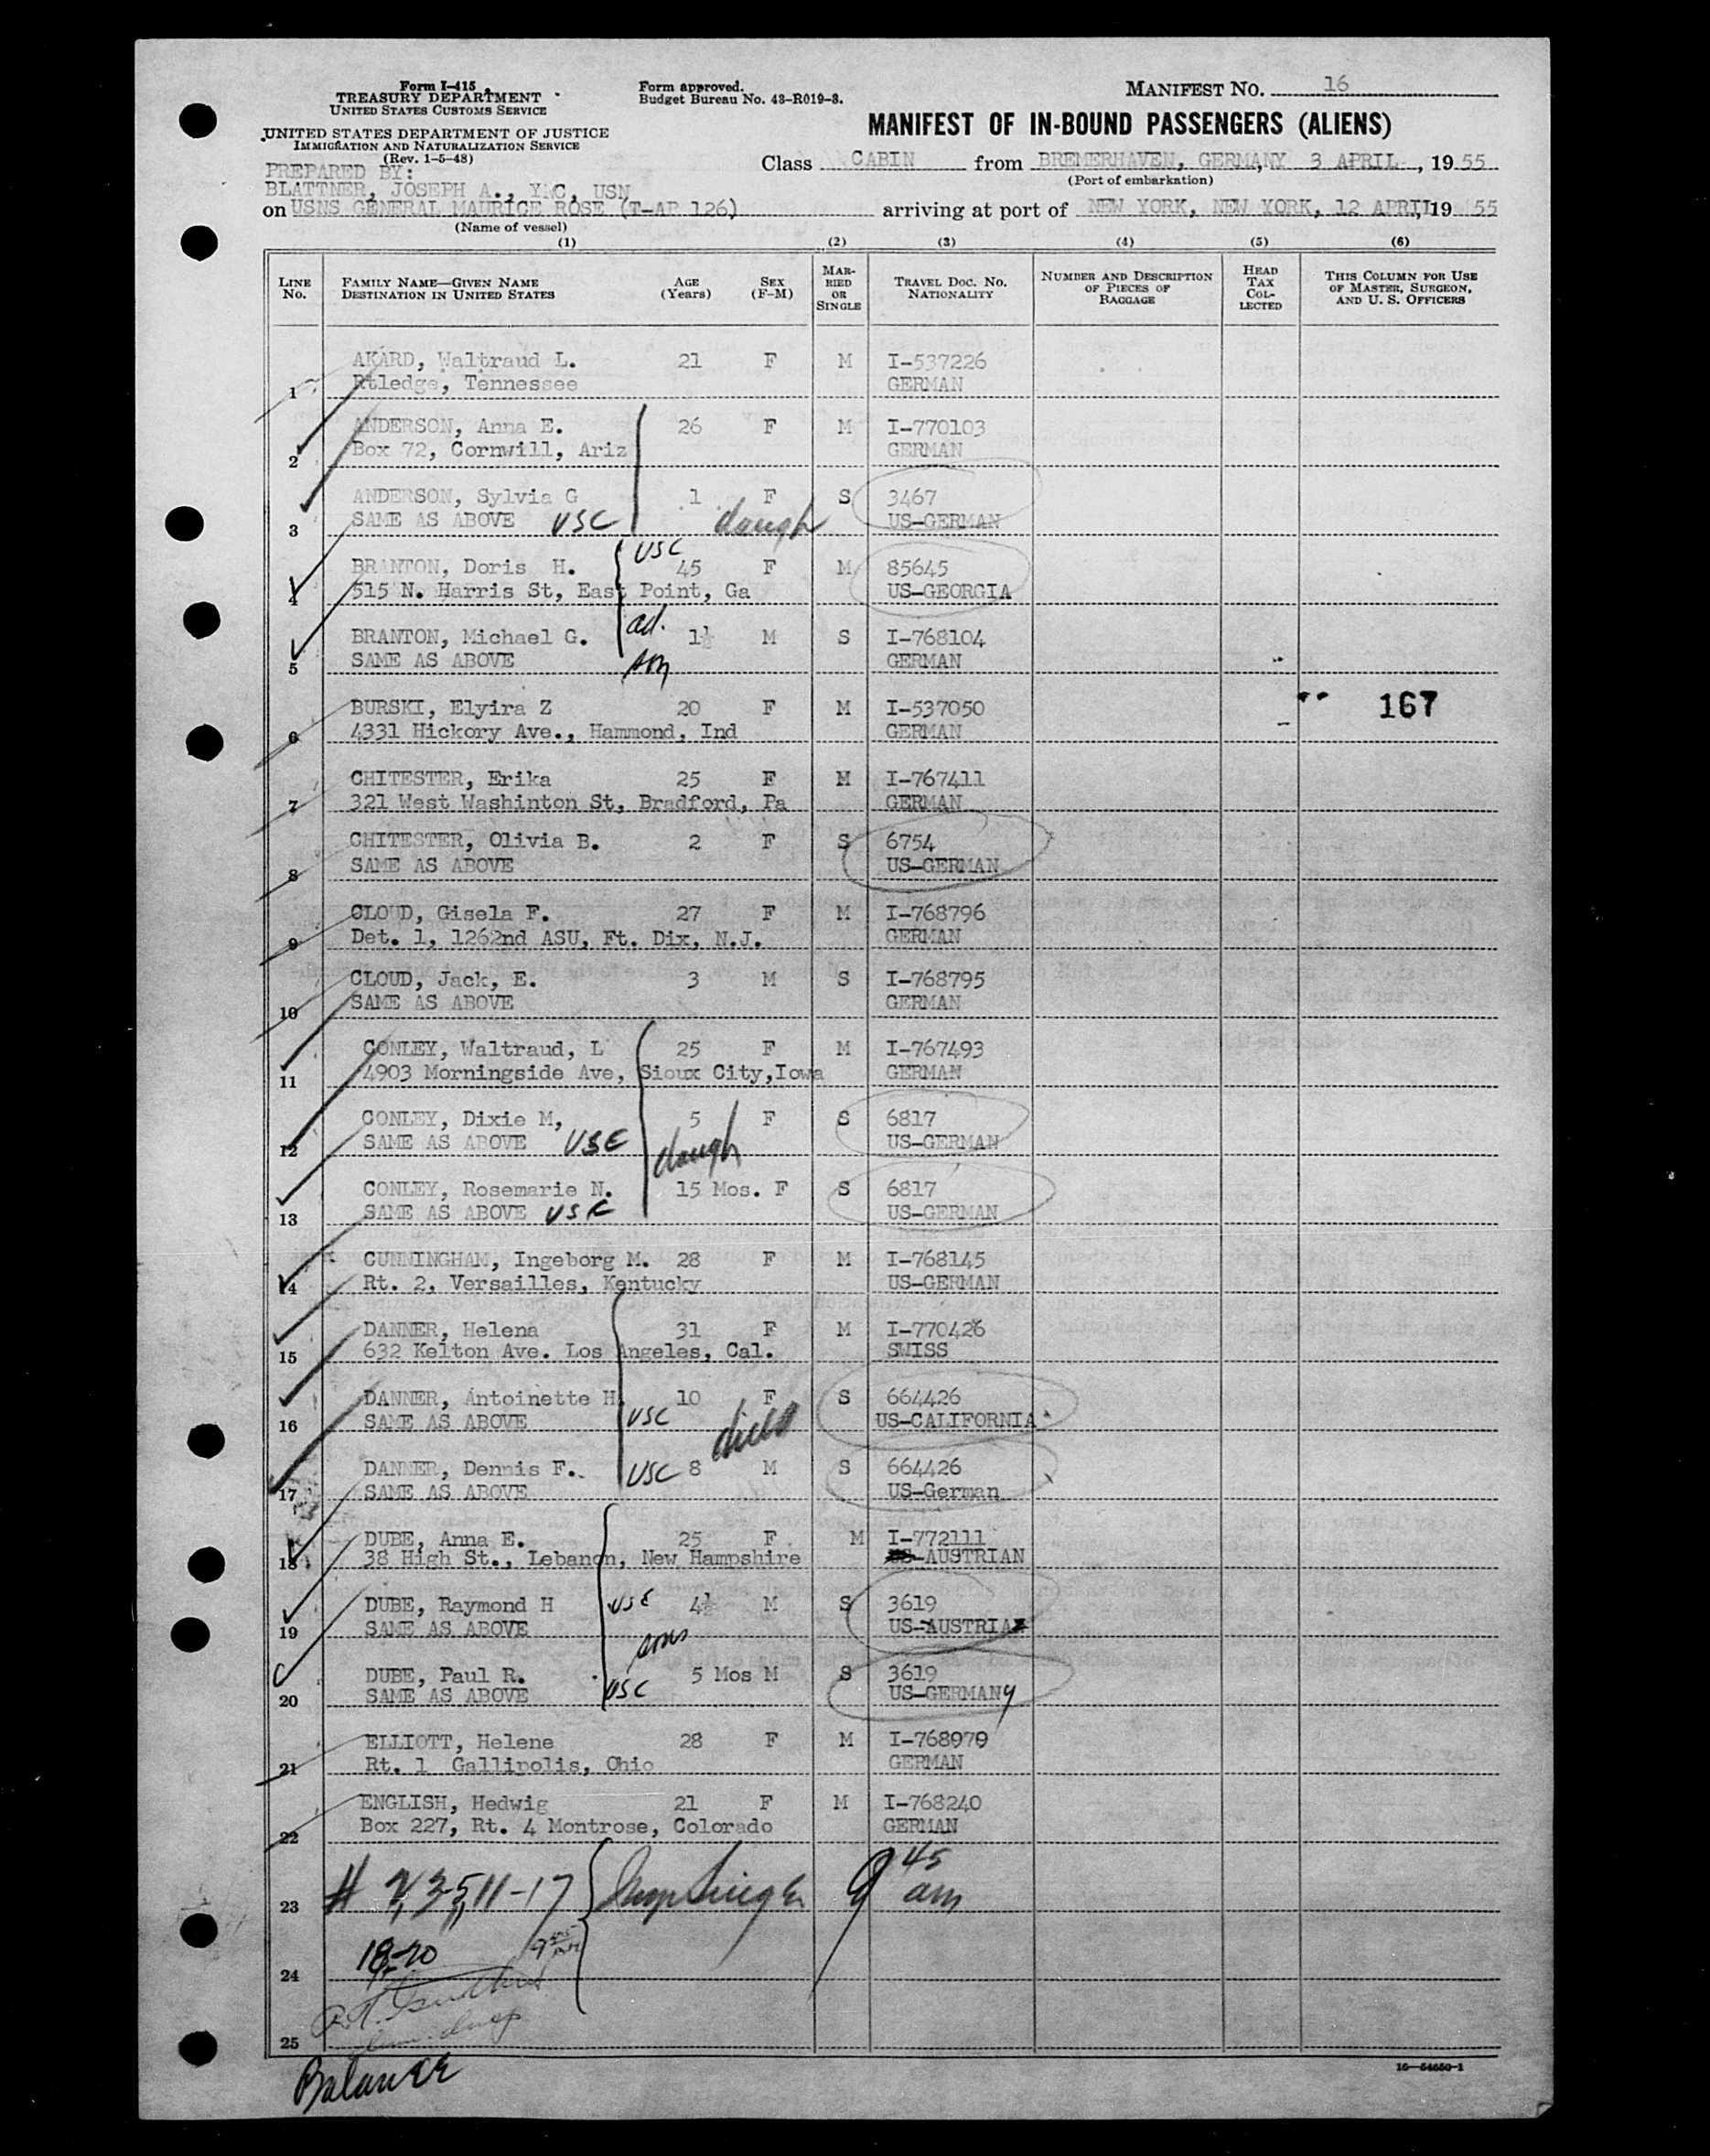 Form I-415
TREASURY DEPARTMENT
UNITED STATES CUSTOMS SERVICE
UNITED STATES DEPARTMENT OF JUSTICE
IMMIGRATION AND NATURALIZATION SERVICE
(Rev. 1-5-48)
Form approved.
Budget Bureau No. 43-R019-3.
MANIFEST NO. 16
MANIFEST OF IN-BOUND PASSENGERS (ALIENS)
Class CABIN from BREMERHAVEN, GERMANY, 3 APRIL, 1955
(Port of embarkation)
PREPARED BY:
BLATTNER, JOSEPH A., YNC, USN
on USNS GENERAL MAURICE ROSE (T-AP 126) arriving at port of NEW YORK, NEW YORK, 12 APRIL, 1955
(Name of vessel)
(1) (2) (3) (4) (5) (6)
LINE NO. FAMILY NAME—GIVEN NAME DESTINATION IN UNITED STATES AGE (Years) SEX (F-M) MARRIED OR SINGLE TRAVEL DOC. NO. NATIONALITY NUMBER AND DESCRIPTION OF PIECES OF BAGGAGE HEAD TAX COLLECTED THIS COLUMN FOR USE OF MASTER, SURGEON, AND U. S. OFFICERS
AKARD, Waltraud L. 21 F M I-537226
1 Rtledge, Tennessee GERMAN
ANDERSON, Anna E. 26 F M I-770103
2 Box 72, Cornwill, Ariz GERMAN
ANDERSON, Sylvia G 1 F S 3467
3 SAME AS ABOVE USC daugh US-GERMAN
USC
BRANTON, Doris H. 45 F M 85645
4 515 N. Harris St, East Point, Ga US-GEORGIA
BRANTON, Michael G. ad. 1½ M S I-768104
5 SAME AS ABOVE son GERMAN
BURSKI, Elyira Z 20 F M I-537050 167
6 4331 Hickory Ave., Hammond, Ind GERMAN
CHITESTER, Erika 25 F M I-767411
7 321 West Washinton St, Bradford, Pa GERMAN
CHITESTER, Olivia B. 2 F S 6754
8 SAME AS ABOVE US-GERMAN
CLOUD, Gisela F. 27 F M I-768796
9 Det. 1, 1262nd ASU, Ft. Dix, N.J. GERMAN
CLOUD, Jack, E. 3 M S I-768795
10 SAME AS ABOVE GERMAN
CONLEY, Waltraud, L 25 F M I-767493
11 4903 Morningside Ave, Sioux City,Iowa GERMAN
CONLEY, Dixie M, 5 F S 6817
12 SAME AS ABOVE USC daugh US-GERMAN
CONLEY, Rosemarie N. 15 Mos. F S 6817
13 SAME AS ABOVE USC US-GERMAN
CUNNINGHAM, Ingeborg M. 28 F M I-768145
14 Rt. 2, Versailles, Kentucky US-GERMAN
DANNER, Helena 31 F M I-770426
15 632 Kelton Ave. Los Angeles, Cal. SWISS
DANNER, Antoinette H. 10 F S 664426
16 SAME AS ABOVE USC US-CALIFORNIA
DANNER, Dennis F. USC 8 M S 664426
17 SAME AS ABOVE US-German
DUBE, Anna E. 25 F M I-772111
18 38 High St., Lebanon, New Hampshire US-AUSTRIAN
DUBE, Raymond H USC 4½ M S 3619
19 SAME AS ABOVE sons US-AUSTRIA
DUBE, Paul R. 5 Mos M S 3619
20 SAME AS ABOVE USC US-GERMANy
ELLIOTT, Helene 28 F M I-768979
21 Rt. 1 Gallipolis, Ohio GERMAN
ENGLISH, Hedwig 21 F M I-768240
22 Box 227, Rt. 4 Montrose, Colorado GERMAN
23 # 2, 3-5, 11-17 9 45 am
24 18-20
25
Balance
16—54650-1